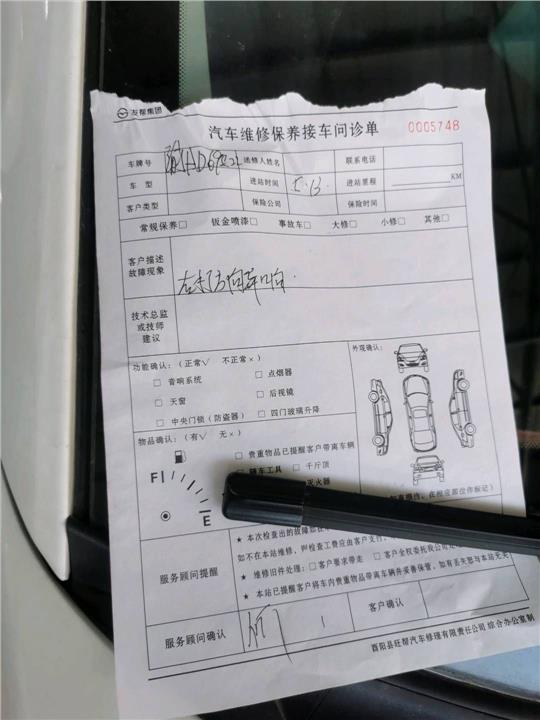 友帮集团
汽车维修保养接车问诊单 0005748
车牌号 送修人姓名 联系电话
车 型 进站时间 5.13. 进站里程 KM
客户类型 保险公司 保险时间
常规保养□ 钣金喷漆□ 事故车□ 大修□ 小修□ 其他□
客户描述
故障现象
技术总监
或技师
建议
功能确认：（正常√ 不正常×） 外观确认：
□ 音响系统 □ 点烟器
□ 天窗 □ 后视镜
□ 中央门锁（防盗器） □ 四门玻璃升降
物品确认：（有√ 无×）
□ 贵重物品已提醒客户带离车辆
随车工具 □ 千斤顶
灭火器
F
E
服务顾问提醒
★ 本次检查出的故障如在本
如不在本站维修，
检查工费应由客户支付，
★ 维修旧件处理：□ 客户要求带走 □ 客户全权委托我公司处
★ 本站已提醒客户将车内贵重物品带离车辆并妥善保管，如有丢失恕与本站无关
服务顾问确认 客户确认
酉阳县旺帮汽车修理有限责任公司 综合办公室制